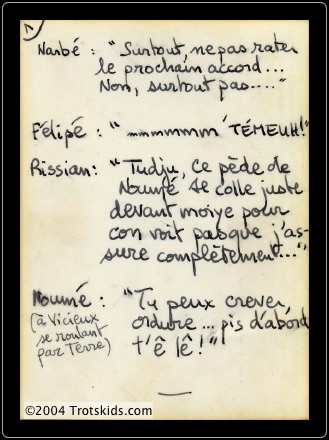 Narbé : "Surtout, ne pas rater
le prochain accord...
Non, surtout pas...."
Félipé : " mmmmmm 'TÉMEUH!"
Rissian : "Tudju, ce pède de
Noumé se colle juste
devant moiye pour
con voit pasque j'as-
sure complètement..."
Noumé : "Tu peux crever,
(à Vicieux ordure... pis d'abord
se roulant t'ê lê !"
par Terre)
©2004 Trotskids.com